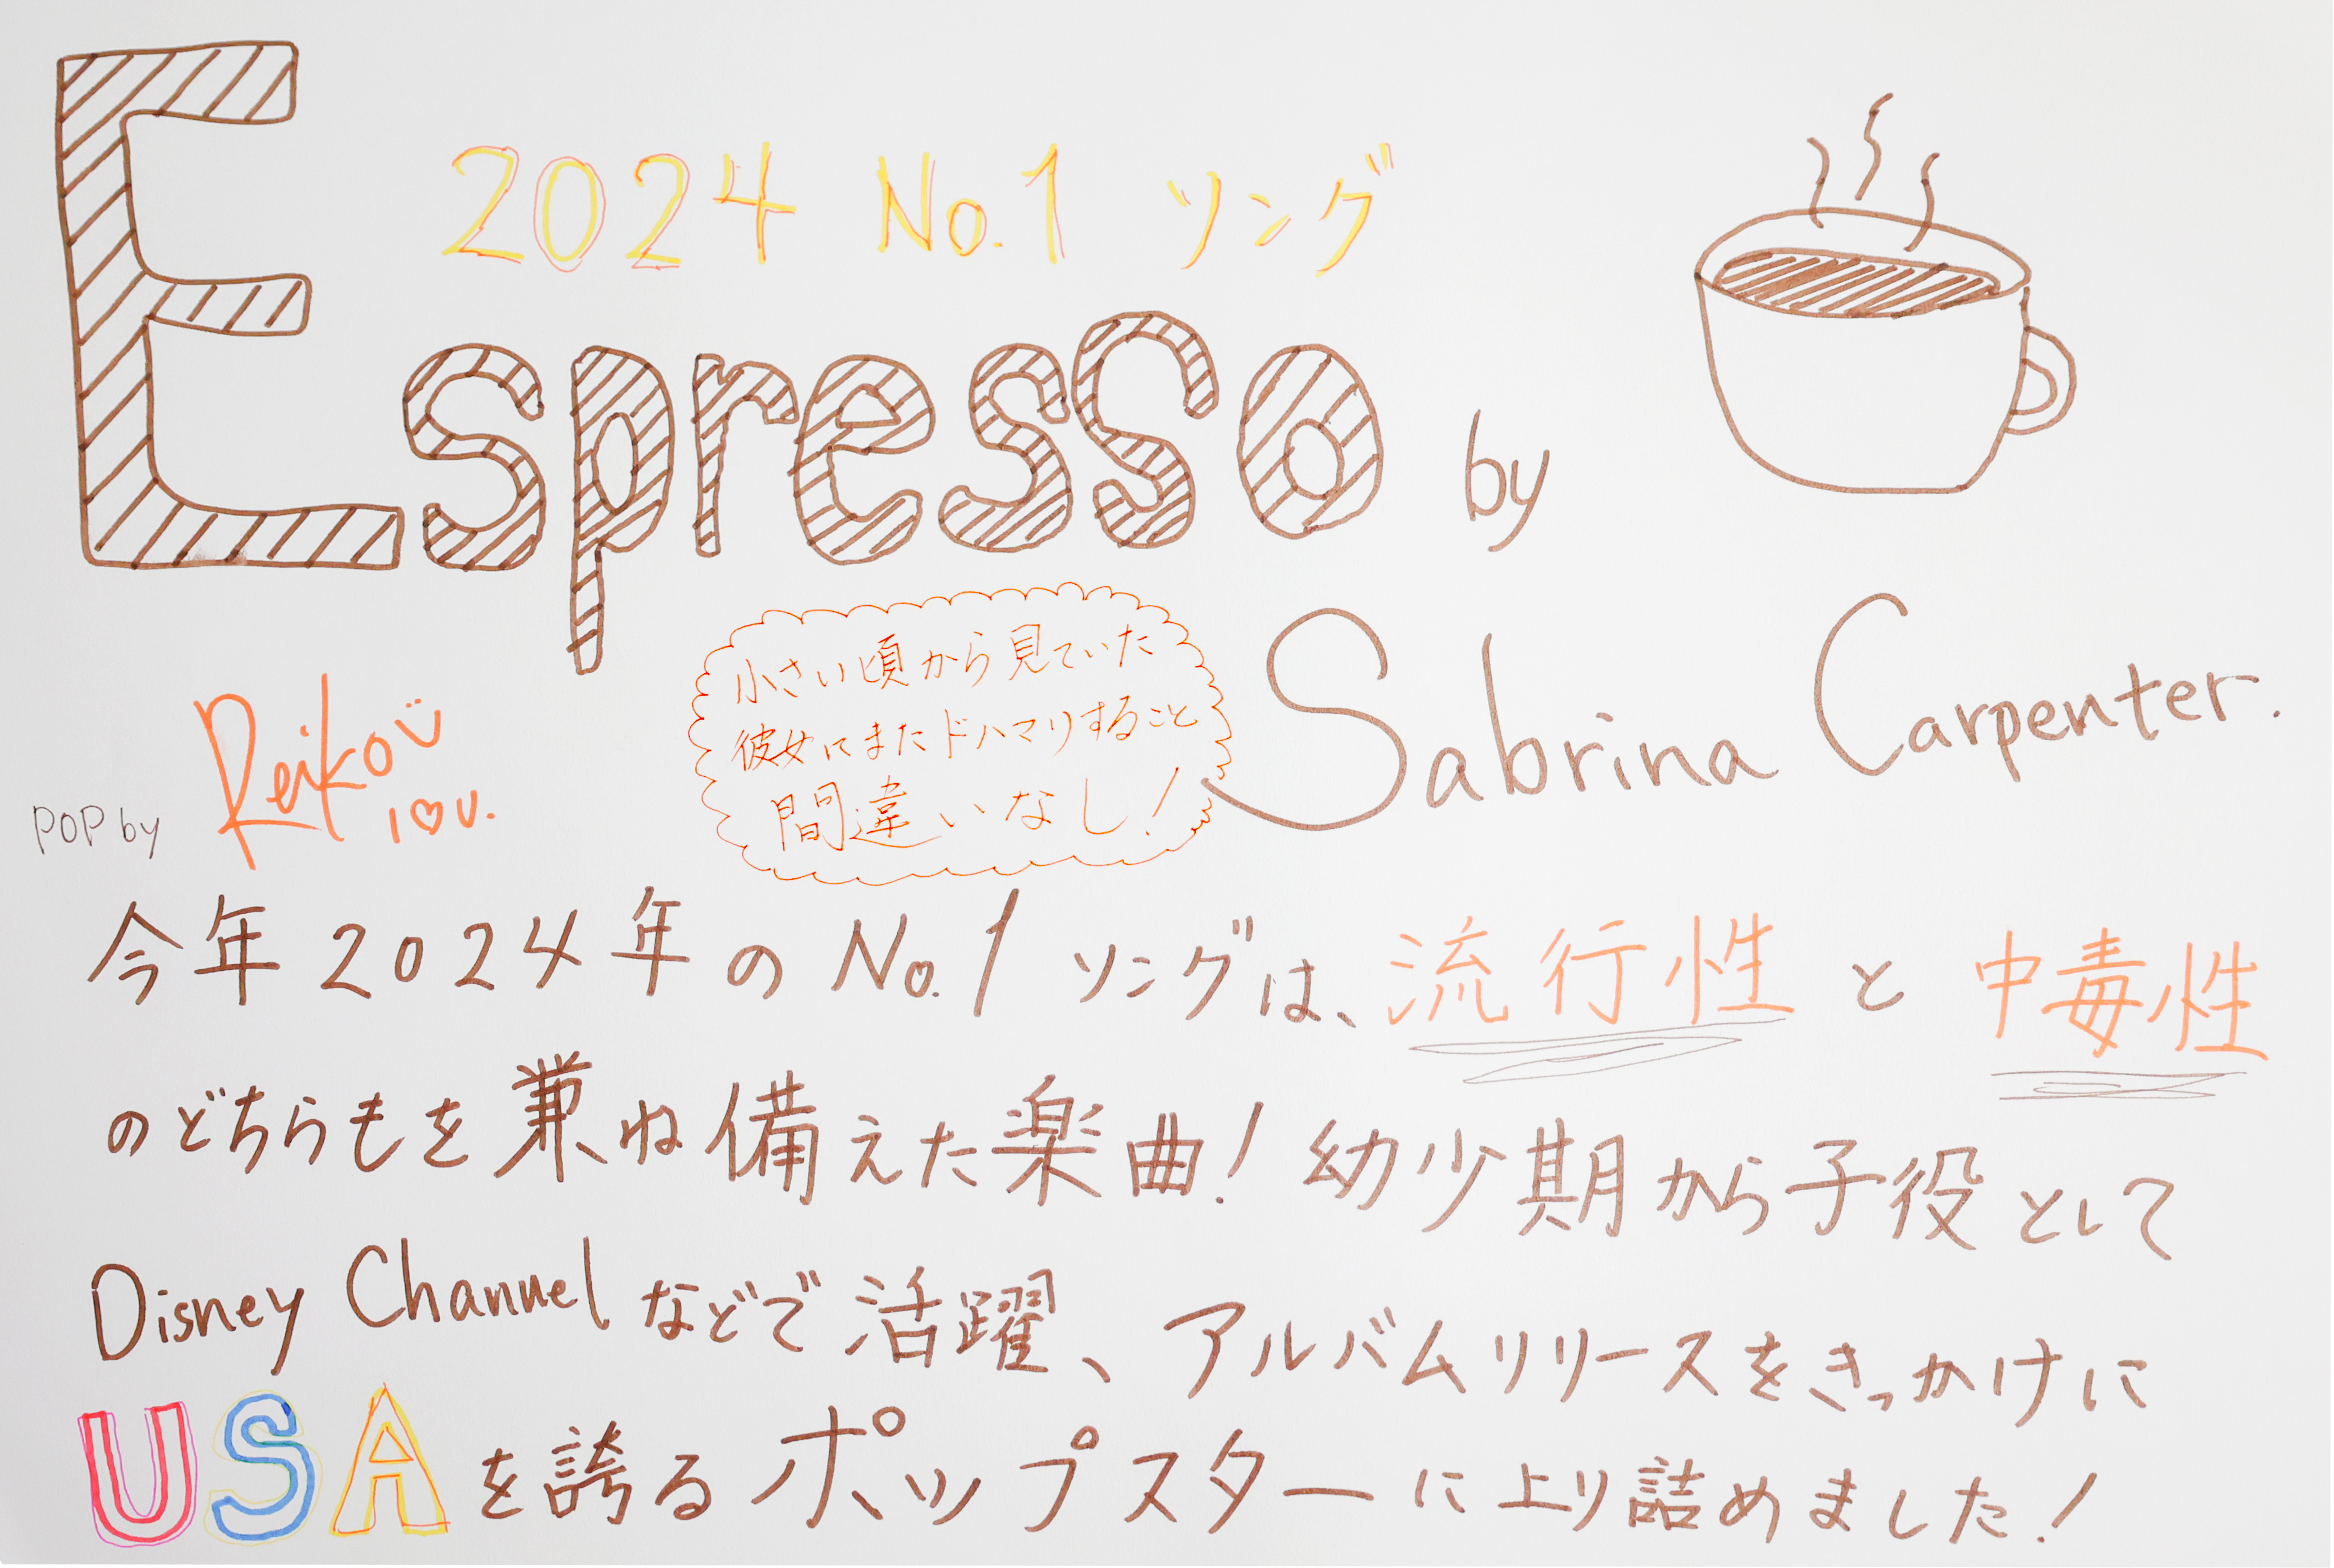 2024 No.1 ソング
Espresso by
Sabrina Carpenter.
小さい頃から見ていた
彼女にまたドハマりすること
間違いなし!
POP by Reiko
I♡U.
今年2024年のNo.1ソングは、流行性と中毒性
のどちらもを兼ね備えた楽曲!幼少期から子役として
Disney Channelなどで活躍、アルバムリリースをきっかけに
USAを誇るポップスターに上り詰めました!